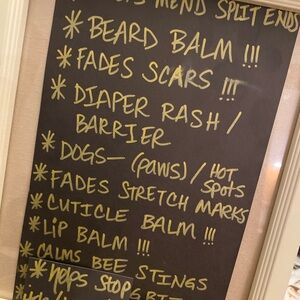 MEND SPLIT ENDS
* BEARD BALM !!!
* FADES SCARS !!!
* DIAPER RASH /
BARRIER
* DOGS— (PAWS) / HOT SPOTS
* FADES STRETCH MARKS
* CUTICLE BALM !!!
* LIP BALM !!!
* CALMS BEE STINGS
* HELPS STOP